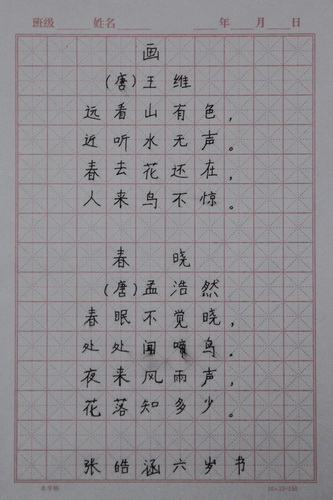 班级 姓名 年 月 日
画
(唐)王维
远看山有色，
近听水无声。
春去花还在，
人来鸟不惊。
春晓
(唐)孟浩然
春眠不觉晓，
处处闻啼鸟。
夜来风雨声，
花落知多少。
张皓涵六岁书